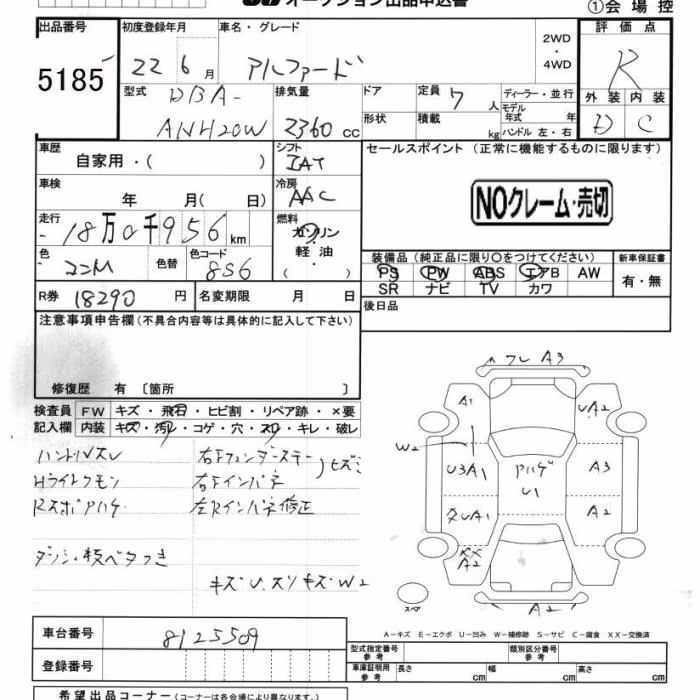 オークション出品申込書
①会場控
出品番号 初度登録年月 車名・グレード 2WD・4WD 評価点
5185 22 6月 アルファード R
型式 DBA-ANH20W 排気量 2360 cc ドア 形状 定員 7 人 積載 kg ディーラー・並行 モデル年式 年 ハンドル 左・右 外装 内装
D C
車歴 自家用・( ) シフト IAT セールスポイント (正常に機能するものに限ります)
車検 年 月( 日) 冷房 AAC
NOクレーム・売切
走行 18万0千956 km 燃料 ガソリン 軽油 ( )
色 コニM 色替 色コード 8S6
装備品 (純正品に限り〇をつけてください) 新車保証書
PS PW ABS エアB AW 有・無
SR ナビ TV カワ
R券 18290 円 名変期限 月 日 後日品
注意事項申告欄 (不具合内容等は具体的に記入して下さい)
修復歴 有 〔箇所 〕
検査員 FW キズ・飛石・ヒビ割・リペア跡・×要
記入欄 内装 キズ・汚れ・コゲ・穴・スレ・キレ・破レ
ハンドルスレ 右Fフェンダーステー ヒズミ
Hライトクモン 右Fインパネ
RスポPハゲ 左Rインパネ修正
ダッシュ枝ベタつき
キズU.スリキズW2
フレ A3
A1 UA2
W2 U3A1 Pハゲ U1 A3
タUA1 A2
XX A2
スペア A2
A-キズ E-エクボ U-凹み W-補修跡 S-サビ C-腐食 XX-交換済
車台番号 8125509
登録番号
型式指定番号 参考 類別区分番号 参考
車庫証明用 参考 長さ cm 幅 cm 高さ cm
希望出品コーナー (コーナーは各会場により異なります。)